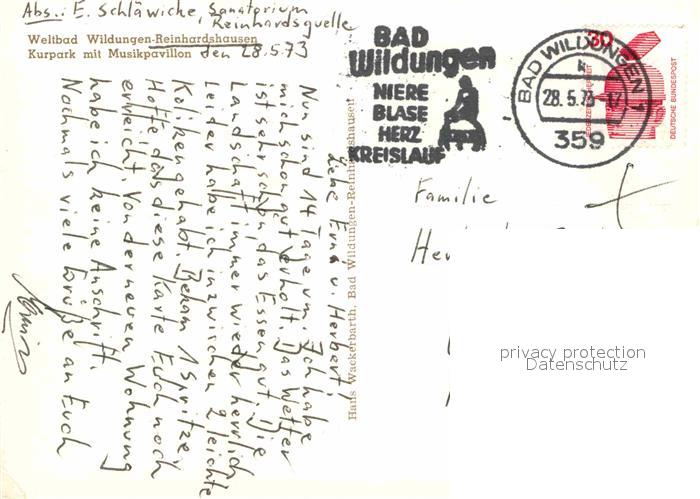 Abs.: E. Schläwicke, Sanatorium
Reinhardsquelle
Weltbad Wildungen-Reinhardshausen
Kurpark mit Musikpavillon den 28.5.73
Liebe Erna u. Herbert!
Nun sind 14 Tage um. Ich habe
mich schon gut erholt. Das Wetter
ist sehr schön, das Essen gut. Die
Landschaft immer wieder herrlich
Leider habe ich inzwischen 2 leichte
Koliken gehabt. Bekam 1 Spritze.
Hoffe das diese Karte Euch noch
erreicht. Von der neuen Wohnung
habe ich keine Anschrift.
Nochmals viele Grüße an Euch
Hans Wackerbarth, Bad Wildungen-Reinhardshausen
BAD
Wildungen
NIERE
BLASE
HERZ
KREISLAUF
BAD WILDUNGEN 1
k
28.5.73-17
359
30
DEUTSCHE BUNDESPOST
Familie
privacy protection
Datenschutz